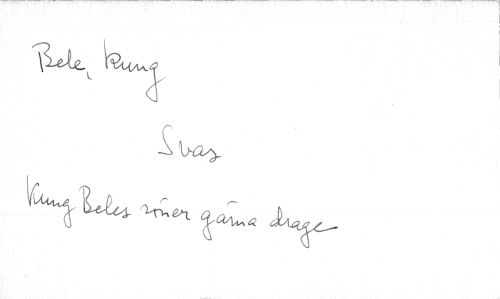 Bele, kung
Svar
Kung Beles söner gärna drage